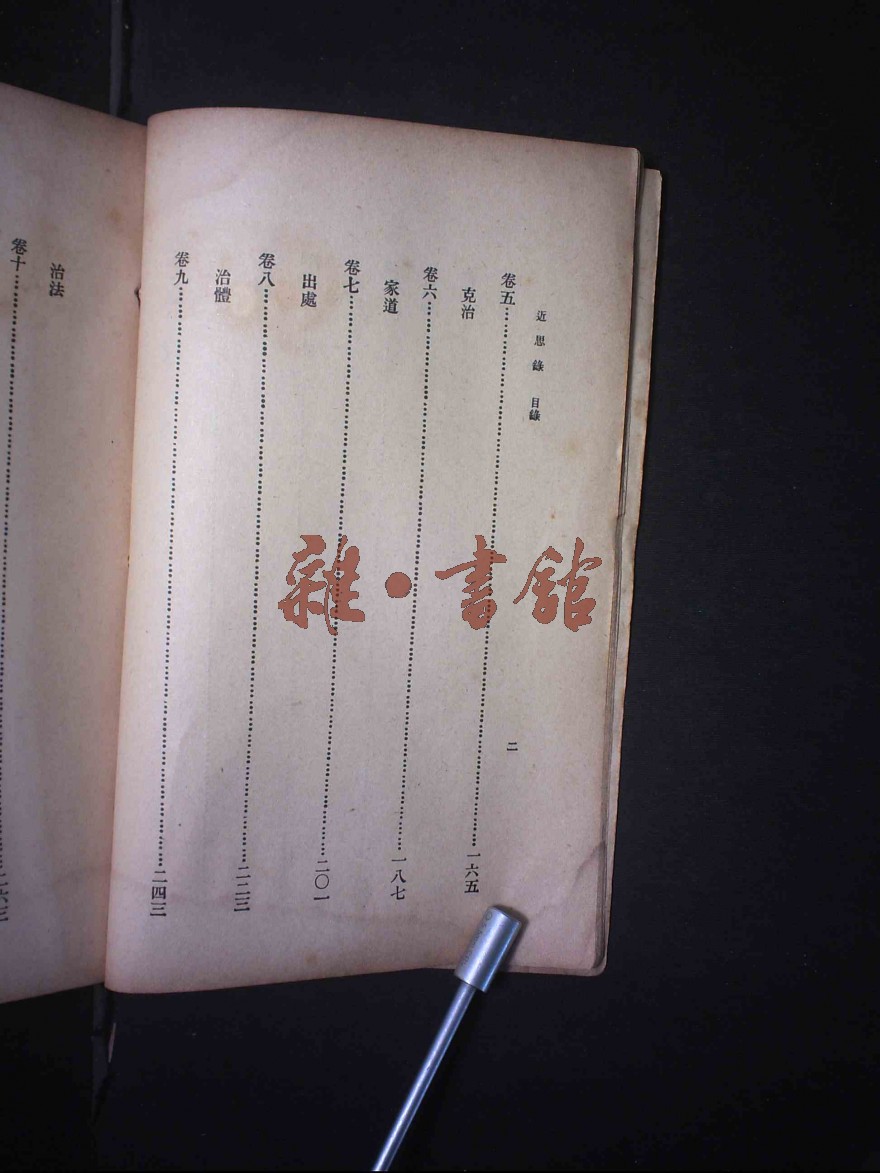 近思錄 目錄 二
卷五 一六五
克治
卷六 一八七
家道
卷七 二〇一
出處
卷八 二二三
治體
卷九 二四三
治法
卷十 二六三
雜·書館